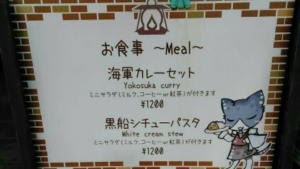 お食事 ～Meal～
海軍カレーセット
Yokosuka curry
ミニサラダ(ミルク、コーヒーor紅茶)が付きます
¥1200
黒船シチューパスタ
White cream stew
ミニサラダ(ミルク、コーヒーor紅茶)が付きます
¥1200